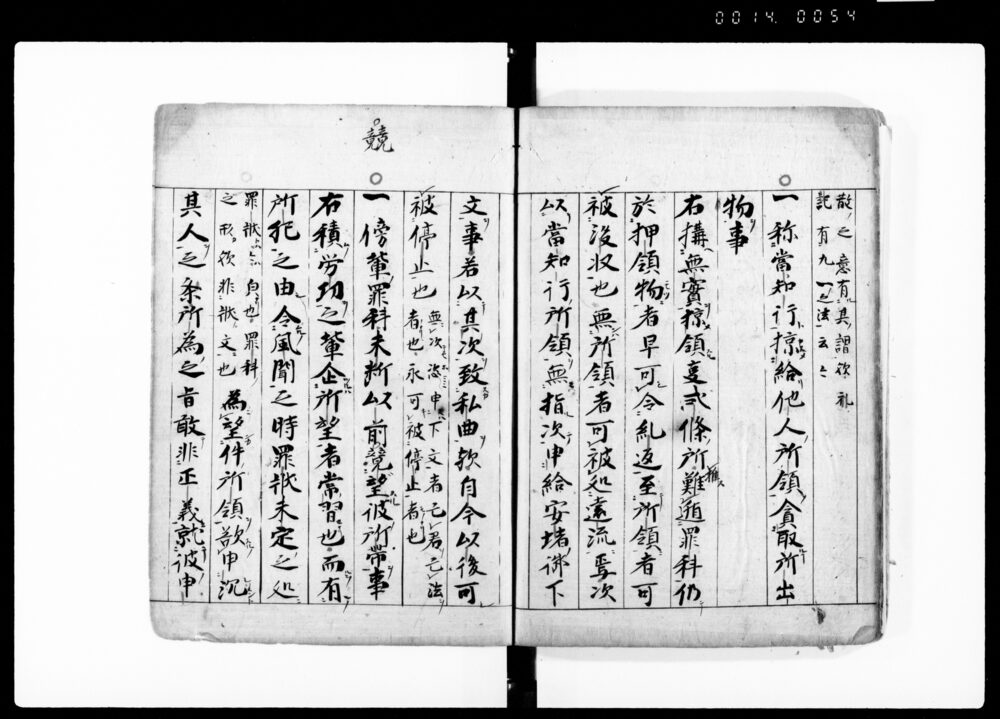 0014. 0054
散之意有其謂欲礼
記有九一之法云云
一称當知行掠給他人所領貪取所出
物事
右搆無實掠領之式條所難遁罪科仍
於押領物者早可令糺返至所領者可
被没収也無所領者可被処遠流焉次
以當知行所領無指次申給安堵御下
文事若以其次致私曲歟自今以後可
被停止也
者也永可被停止者也
競
一傍輩罪科未断以前競望彼所帶事
右積労功之輩企所望者常習也而有
所犯之由令風聞之時罪状未定之処
罪状自也罪科
之形欲非状文也
為望件所領欲申沉
其人之条所為之旨敢非正義就彼申